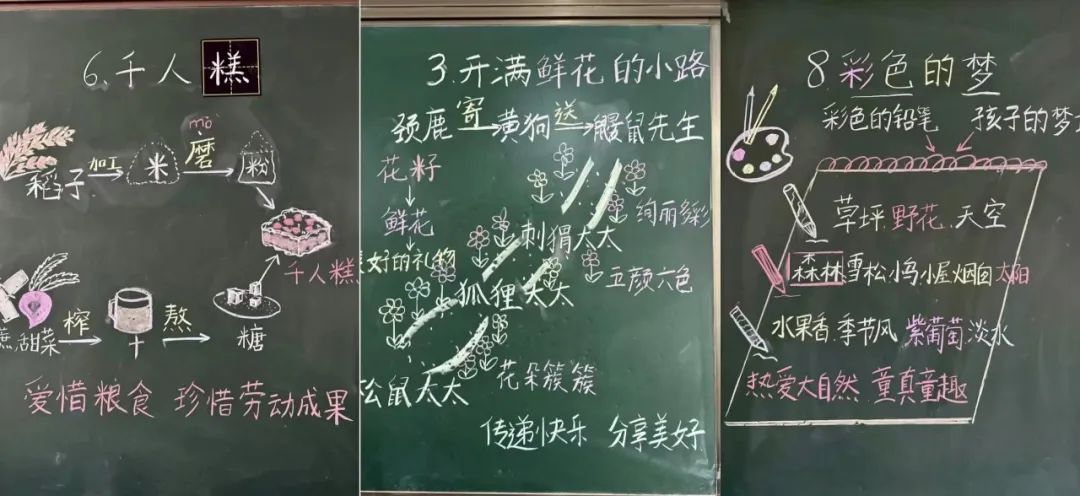 6.千人糕
mò
稻子 加工 米 磨 粉
千人糕
蔗,甜菜 榨 汁 熬 糖
爱惜粮食 珍惜劳动成果
3.开满鲜花的小路
颈鹿 寄 黄狗 送 鼹鼠先生
花籽
鲜花
绚丽多彩
刺猬太太
美好的礼物
五颜六色
狐狸太太
花朵簇簇
松鼠太太
传递快乐 分享美好
8.彩色的梦
彩色的铅笔 孩子的梦
草坪.野花.天空
森林雪松.小鸟.小屋.烟囱.太阳
水果香.季节风 紫葡萄.淡水
热爱大自然 童真童趣